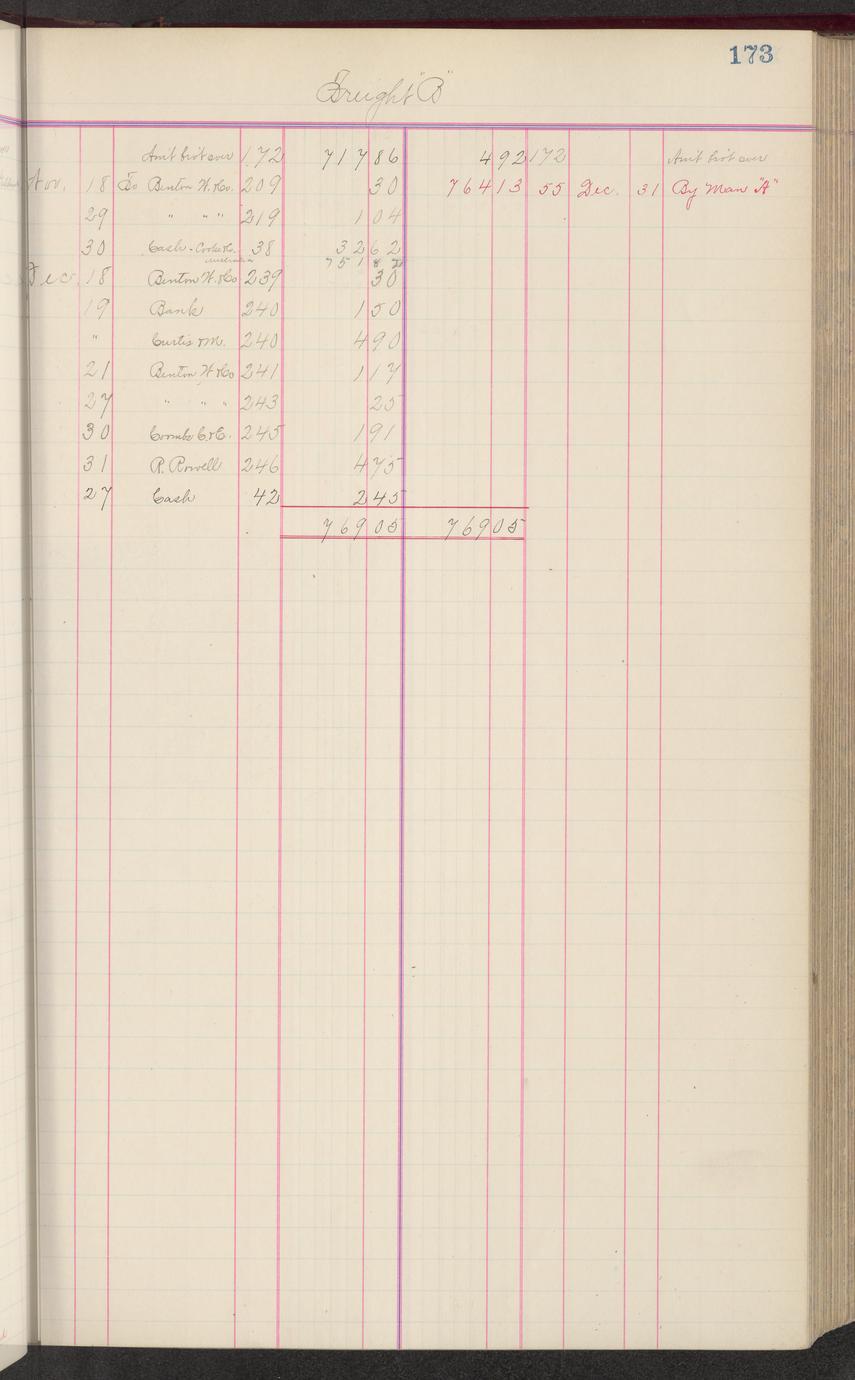 173
Freight "B"
Am't bro't over 172 717 86 4 92 172 Am't bro't over
Nov. 18 To Benton H. & Co. 209 30 764 13 55 Dec. 31 By Man "A"
29 " " " 219 1 04
30 Cash - Cooke & Co. 38 32 62
751 82
Dec. 18 Benton H. & Co 239 30
19 Bank 240 1 50
" Curtis & M. 240 4 90
21 Benton H. & Co 241 1 17
27 " " " 243 25
30 Coombs C. & C. 245 1 91
31 R. Rowell 246 4 75
27 Cash 42 2 45
769 05 769 05